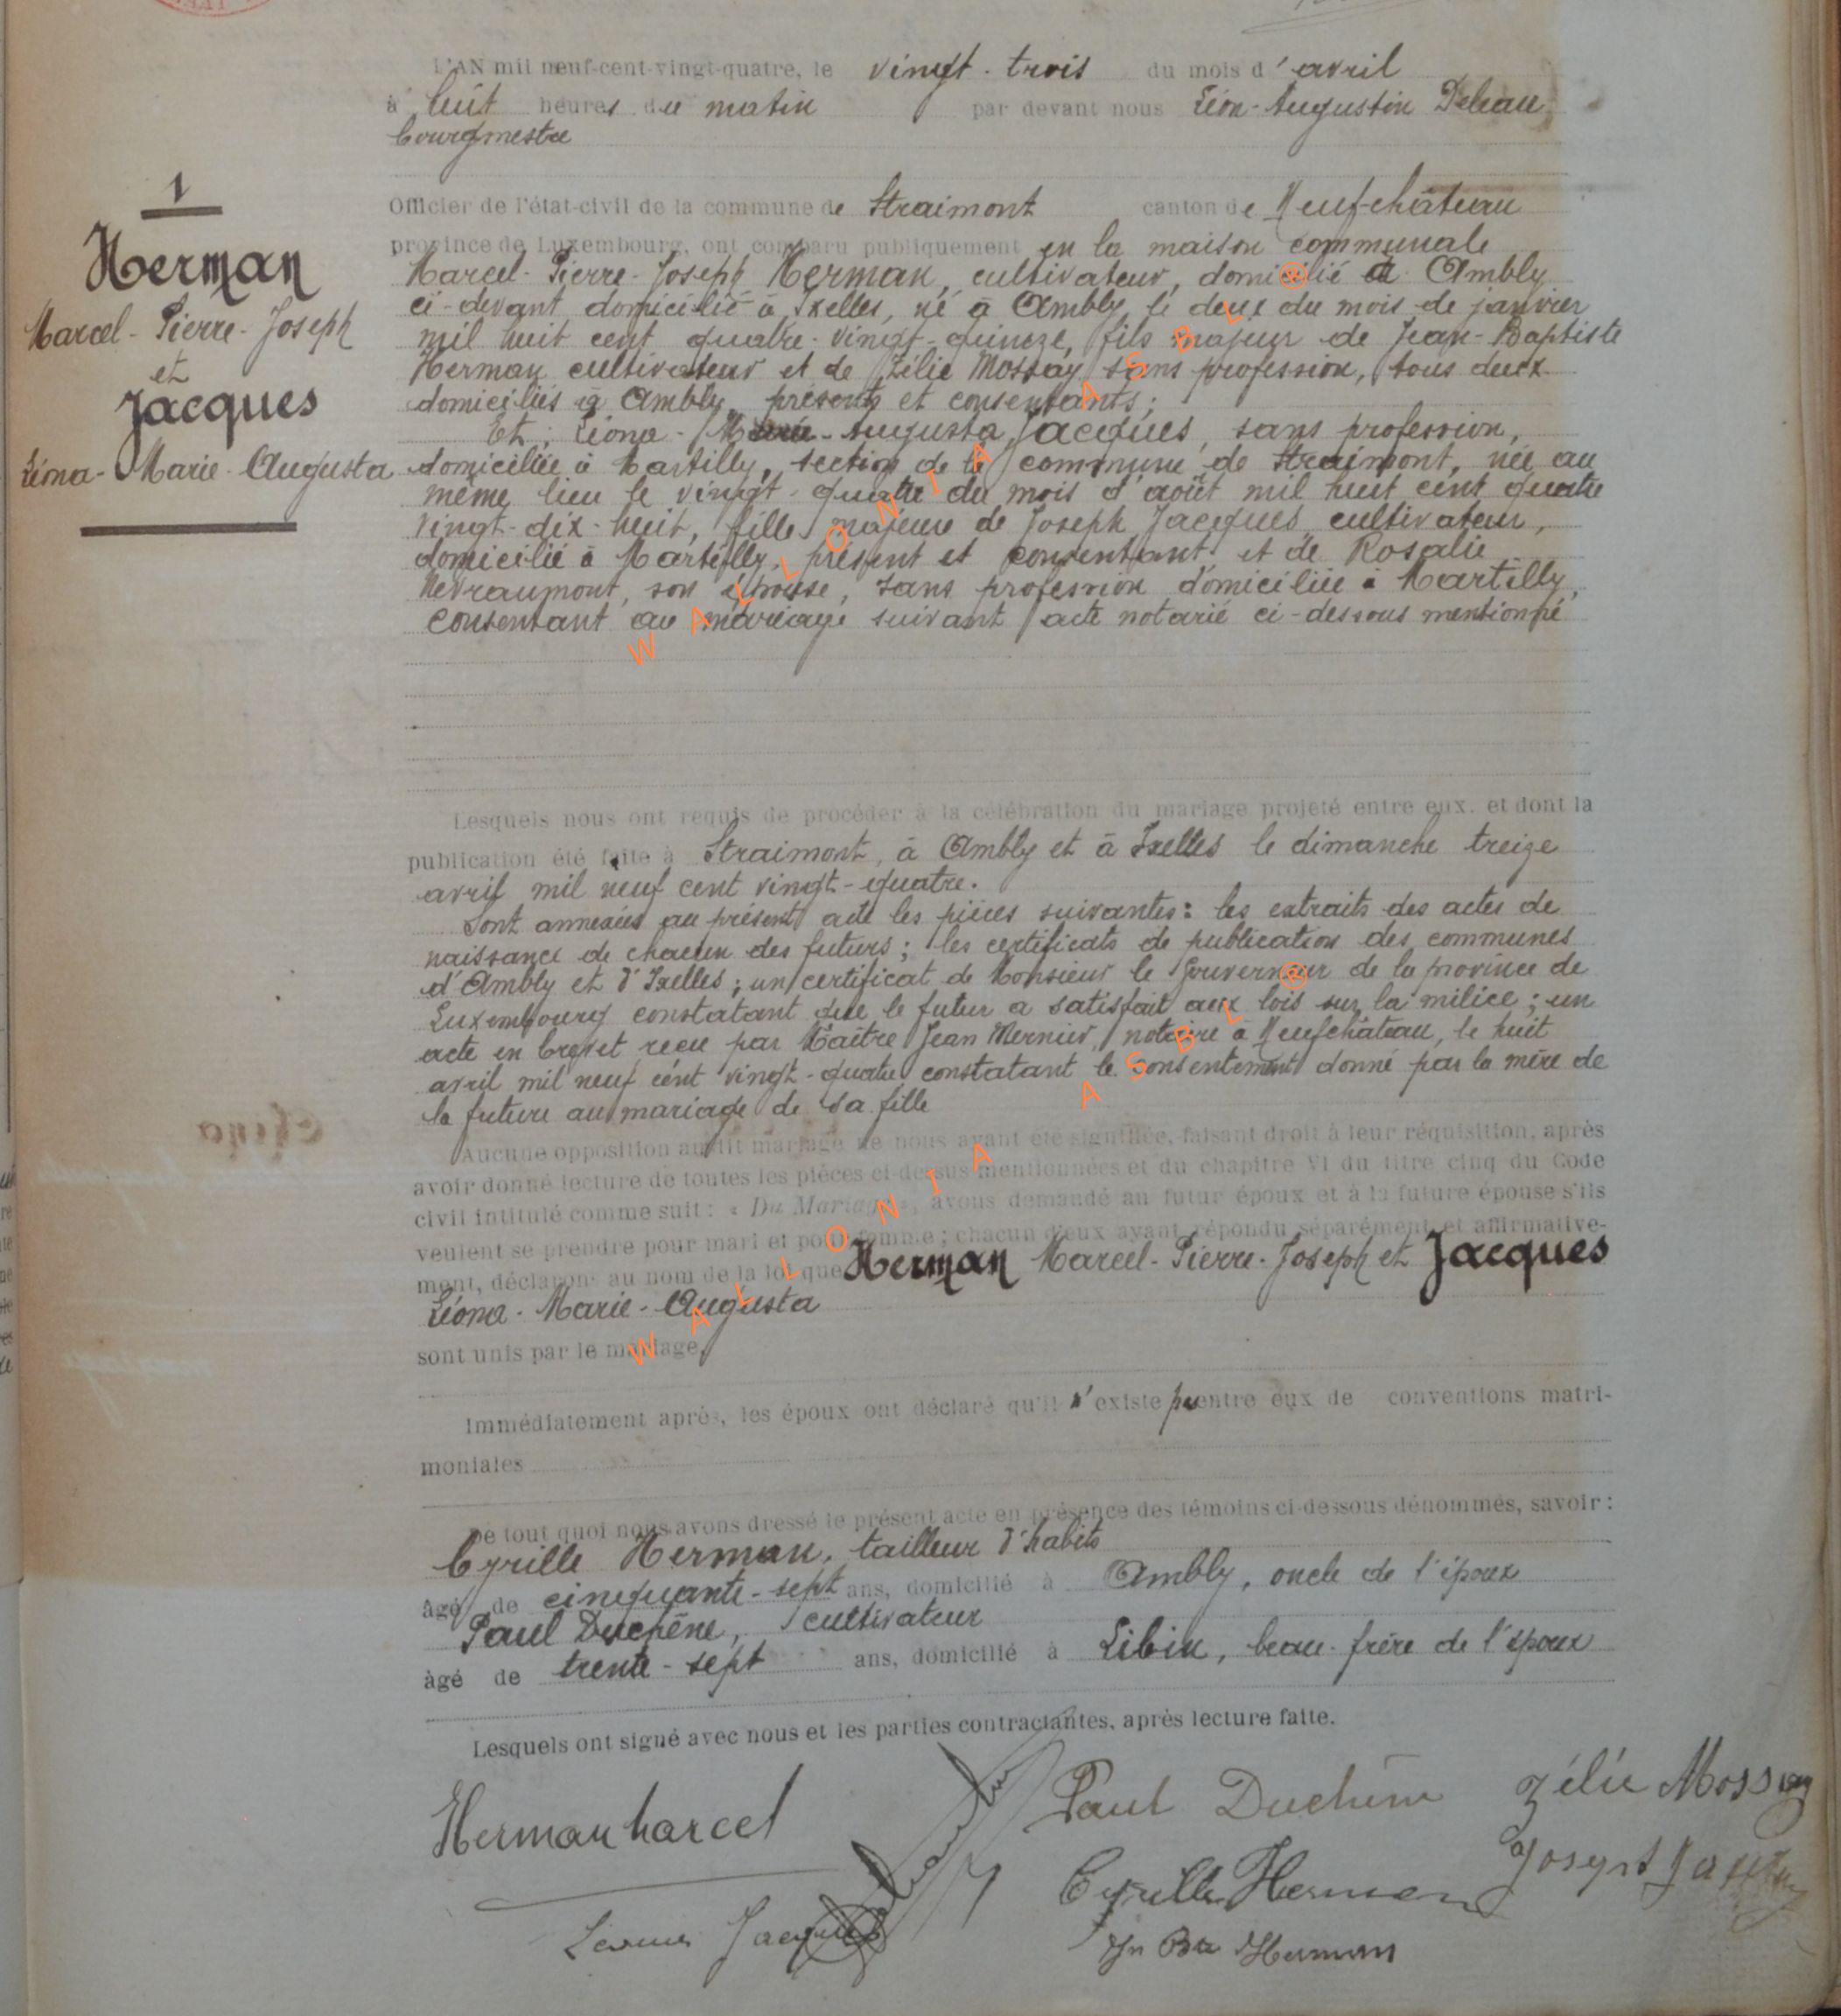 1
Herman
Marcel-Pierre-Joseph
et
Jacques
Léona-Marie-Augusta
L'AN mil neuf-cent-vingt-quatre, le vingt-trois du mois d'avril
à huit heures du matin par devant nous Léon-Augustin
bourgmestre
Officier de l'état-civil de la commune de Straimont canton de Neufchâteau
province de Luxembourg, ont comparu publiquement en la maison communale
Marcel-Pierre-Joseph Herman, cultivateur, domicilié à Ambly
ci-devant domicilié à Ixelles, né à Ambly le deux du mois de janvier
mil huit cent quatre-vingt-quinze, fils majeur de Jean-Baptiste
Herman cultivateur et de Zélie Mossay sans profession, tous deux
domiciliés à Ambly, présents et consentants;
Et, Léona-Marie-Augusta Jacques, sans profession,
domiciliée à Martilly, section de la commune de Straimont, née au
même lieu le vingt-quatre du mois d'août mil huit cent quatre
vingt-dix-huit, fille majeure de Joseph Jacques cultivateur,
domicilié à Martilly, présent et consentant et de Rosalie
Nevraumont, son épouse, sans profession domiciliée à Martilly,
consentant au mariage suivant acte notarié ci-dessous mentionné
Lesquels nous ont requis de procéder à la célébration du mariage projeté entre eux. et dont la
publication été faite à Straimont, à Ambly et à Ixelles le dimanche treize
avril mil neuf cent vingt-quatre.
Sont annexées au présent acte les pièces suivantes: les extraits des actes de
naissance de chacun des futurs; les certificats de publication des communes
d'Ambly et d'Ixelles; un certificat de Monsieur le Gouverneur de la province de
Luxembourg constatant que le futur a satisfait aux lois sur la milice; un
acte en brevet reçu par Maître Jean Mernier, notaire à Neufchâteau, le huit
avril mil neuf cent vingt-quatre constatant le consentement donné par la mère de
la future au mariage de sa fille
Aucune opposition audit mariage ne nous ayant été signifiée, faisant droit à leur réquisition, après
avoir donné lecture de toutes les pièces ci-dessus mentionnées et du chapitre VI du titre cinq du Code
civil intitulé comme suit: « Du Mariage », avons demandé au futur époux et à la future épouse s'ils
veulent se prendre pour mari et pour femme; chacun d'eux ayant répondu séparément et affirmative-
ment, déclarons au nom de la loi que Herman Marcel-Pierre-Joseph et Jacques
Léona-Marie-Augusta
sont unis par le mariage,
Immédiatement après, les époux ont déclaré qu'il n'existe entre eux de conventions matri-
moniales
De tout quoi nous avons dressé le présent acte en présence des témoins ci-dessous dénommés, savoir:
Cyrille Herman, tailleur d'habits
âgé de cinquante-sept ans, domicilié à Ambly, oncle de l'époux
Paul Duchêne, cultivateur
âgé de trente-sept ans, domicilié à Libin, beau-frère de l'époux
Lesquels ont signé avec nous et les parties contractantes, après lecture faite.
Herman Marcel
Paul Duchêne
Zélie Mossay
Cyrille Herman
Jn Bte Herman
WALLONIA ASBL ®
WALLONIA ASBL ®